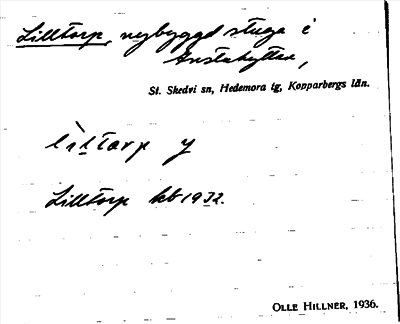 Lilltorp, nybyggd stuga i
Anstahyttan,
St. Skedvi sn, Hedemora tg, Kopparbergs län.
lìltorp y
Lilltorp kb 1932.
OLLE HILLNER, 1936.